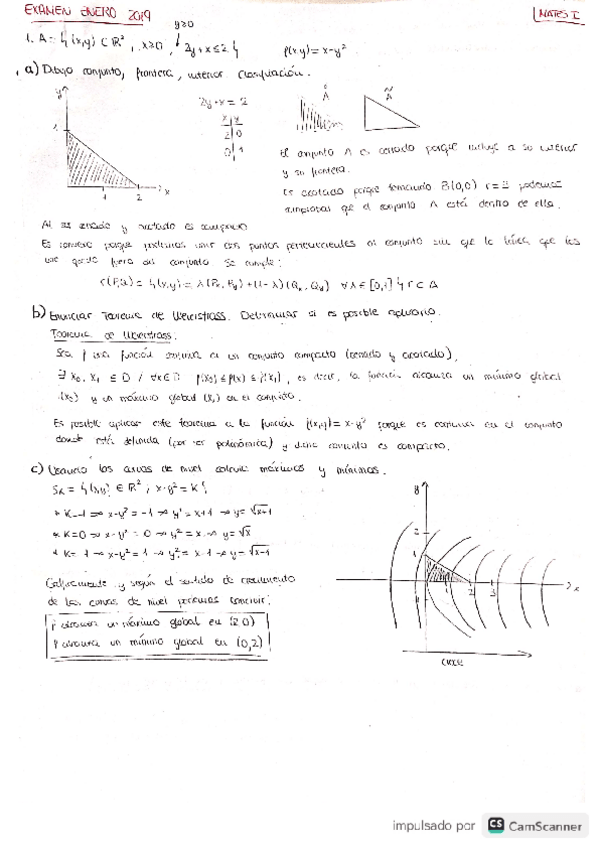 EXAMEN ENERO 2019
MATES I
y≥0
1. A = { (x,y) ⊂ R², x≥0, 2y+x≤2 } f(x,y)= x-y²
a) Dibujo conjunto, frontera, interior. Clasificación.
y
2y+x = 2
x y
2 0
0 1
Å
Ã
1
1 2 x
El conjunto A es cerrado porque incluye a su interior
y su frontera.
Es acotado porque tomando B(0,0) r=3 podemos
que el conjunto A está dentro de ella.
Al ser cerrado y acotado es compacto
Es convexo porque podríamos unir dos puntos pertenecientes al conjunto sin que la línea que los
une quede fuera del conjunto. Se cumple:
r(P,Q) = { (x,y) = λ(Px, Py) + (1-λ)(Qx, Qy) ∀λ∈[0,1] } r ⊂ A
b) Enunciar Teorema de Weierstrass. Determinar si es posible aplicarlo.
Teorema de Weierstrass.
Sea f una función continua en un conjunto compacto (cerrado y acotado),
∃ x₀, x₁ ∈ D / ∀x∈D f(x₀) ≤ f(x) ≤ f(x₁), es decir, la función alcanza un mínimo global
(x₀) y un máximo global (x₁) en el conjunto.
Es posible aplicar este teorema a la función f(x,y)= x-y² porque es continua en el conjunto
donde está definida (por ser polinómica) y dicho conjunto es compacto.
c) Usando las curvas de nivel calcule máximos y mínimos.
Sk = { (x,y) ∈ R², x-y² = K }
* K=-1 → x-y² = -1 → y² = x+1 → y = √x+1
* K=0 → x-y² = 0 → y² = x → y = √x
* K= 1 → x-y² = 1 → y² = x-1 → y = √x-1
Gráficamente y según el sentido de crecimiento
de las curvas de nivel podemos concluir:
f alcanza un máximo global en (2,0)
f alcanza un mínimo global en (0,2)
y
2
1
1 2 3 x
crece
impulsado por CS CamScanner